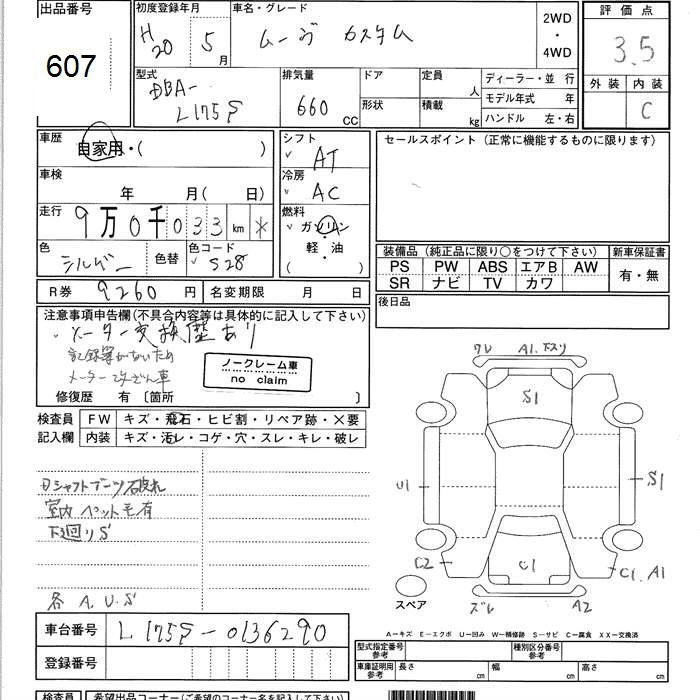 出品番号
607
初度登録年月
H20 5月
車名・グレード
ムーヴ カスタム
2WD
・
4WD
評価点
3.5
外装 内装
C
型式
DBA-
L175S
排気量
660 cc
ドア
形状
定員 人
積載 kg
ディーラー・並行
モデル年式 年
ハンドル 左・右
車歴
自家用・( )
車検
年 月( 日)
走行
9万0千033 km *
色
シルバー
色替
色コード
S28
シフト
AT
冷房
AC
燃料
ガソリン
軽・油
( )
セールスポイント (正常に機能するものに限ります)
装備品 (純正品に限り○をつけて下さい)
新車保証書
PS PW ABS エアB AW
SR ナビ TV カワ
有・無
R券 9260円
名変期限 月 日
後日品
注意事項申告欄(不具合内容等は具体的に記入して下さい)
メーター交換歴あり
記録簿がないため
メーター改ざん車
ノークレーム車
no claim
修復歴 有 〔箇所 〕
検査員
記入欄
FW キズ・飛石・ヒビ割・リペア跡・×要
内装 キズ・汚レ・コゲ・穴・スレ・キレ・破レ
Dシャフトブーツ破れ
室内 ペット毛有
下廻りS
各 A.U.S
ワレ A1.下スリ
S1
U1
S1
C2
C1
C1.A1
ズレ A2
スペア
車台番号 L175S-0136290
登録番号
A−キズ E−エクボ U−凹み W−補修跡 S−サビ C−腐食 XX−交換済
型式指定番号
参考
種別区分番号
参考
車庫証明用
参考
長さ cm
幅 cm
高さ cm
検査員
希望出品コーナー(ご希望のコーナー名を記入して下さい)